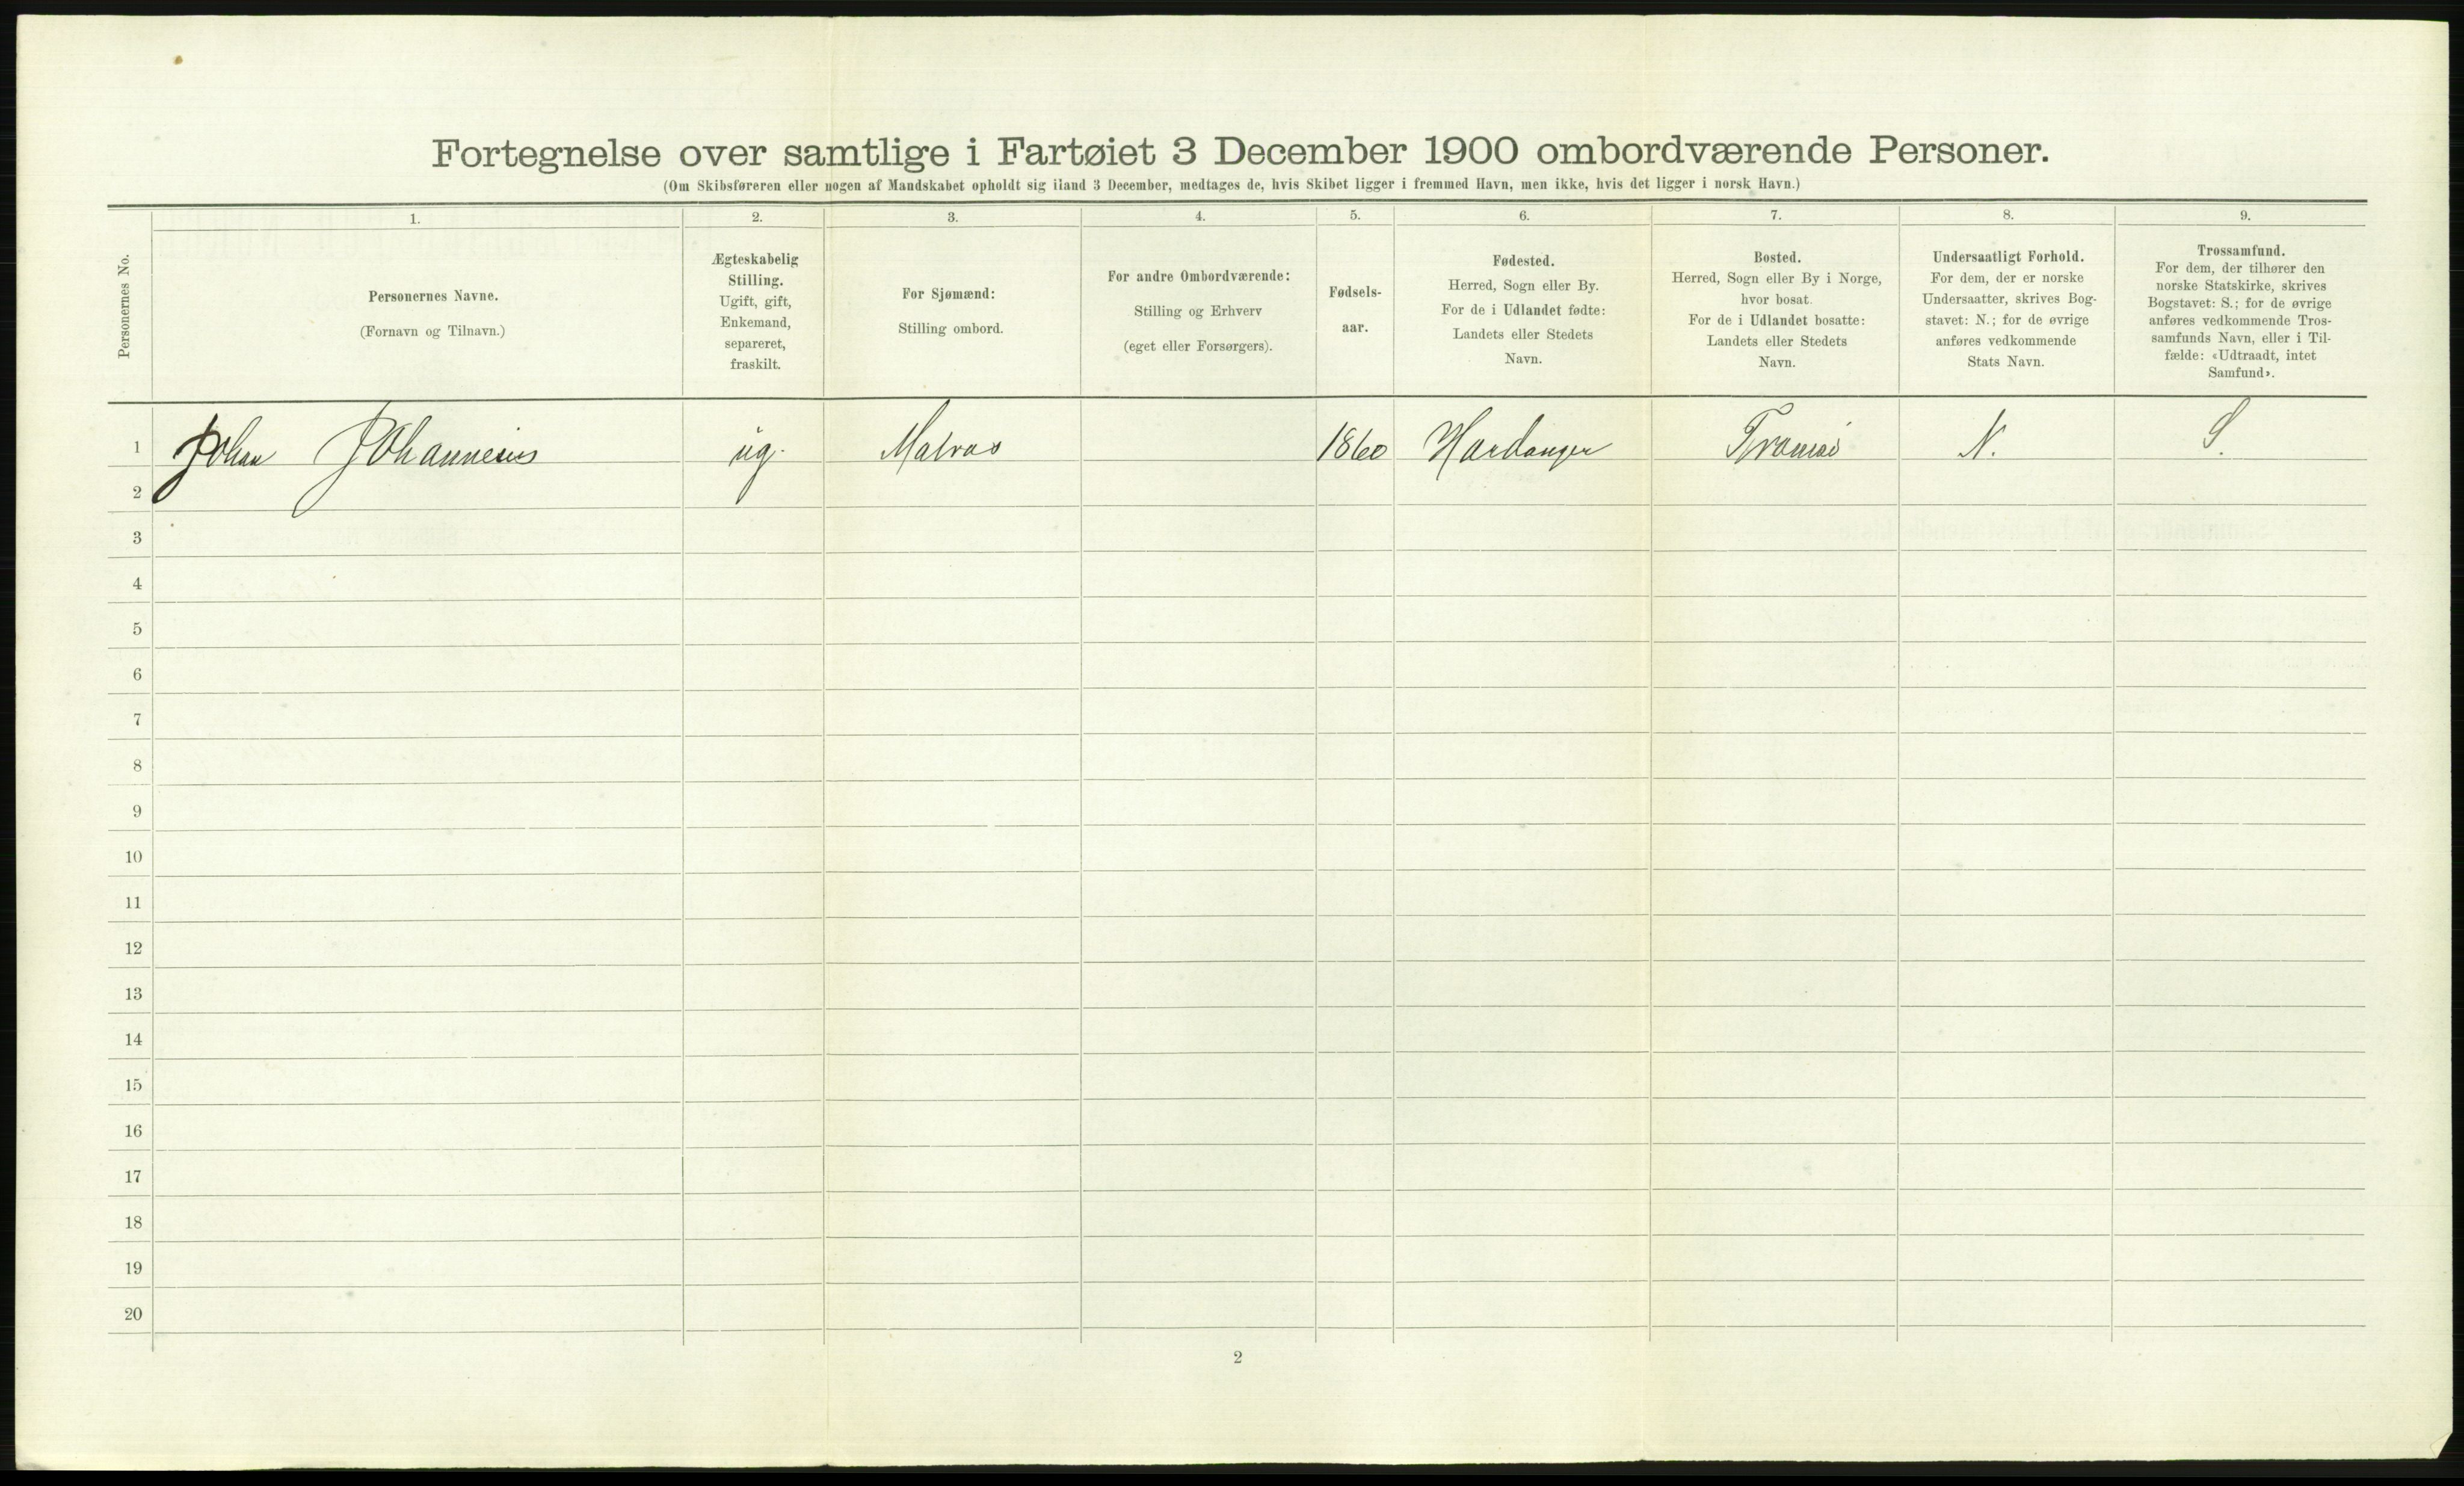 Fortegnelse over samtlige i Fartøiet 3 December 1900 ombordværende Personer.
(Om Skibsføreren eller nogen af Mandskabet opholdt sig iland 3 December, medtages de, hvis Skibet ligger i fremmed Havn, men ikke, hvis det ligger i norsk Havn.)
Personernes No.
1.
Personernes Navne.
(Fornavn og Tilnavn.)
2.
Ægteskabelig
Stilling.
Ugift, gift,
Enkemand,
separeret,
fraskilt.
3.
For Sjømænd:
Stilling ombord.
4.
For andre Ombordværende:
Stilling og Erhverv
(eget eller Forsørgers).
5.
Fødsels-
aar.
6.
Fødested.
Herred, Sogn eller By.
For de i Udlandet fødte:
Landets eller Stedets
Navn.
7.
Bosted.
Herred, Sogn eller By i Norge,
hvor bosat.
For de i Udlandet bosatte:
Landets eller Stedets
Navn.
8.
Undersaatligt Forhold.
For dem, der er norske
Undersaatter, skrives Bog-
stavet: N.; for de øvrige
anføres vedkommende
Stats Navn.
9.
Trossamfund.
For dem, der tilhører den
norske Statskirke, skrives
Bogstavet: S.; for de øvrige
anføres vedkommende Tros-
samfunds Navn, eller i Til-
fælde: «Udtraadt, intet
Samfund».
1 Johan ug. Matros 1860 Hardanger Tromsö N. S.
2
3
4
5
6
7
8
9
10
11
12
13
14
15
16
17
18
19
20
2